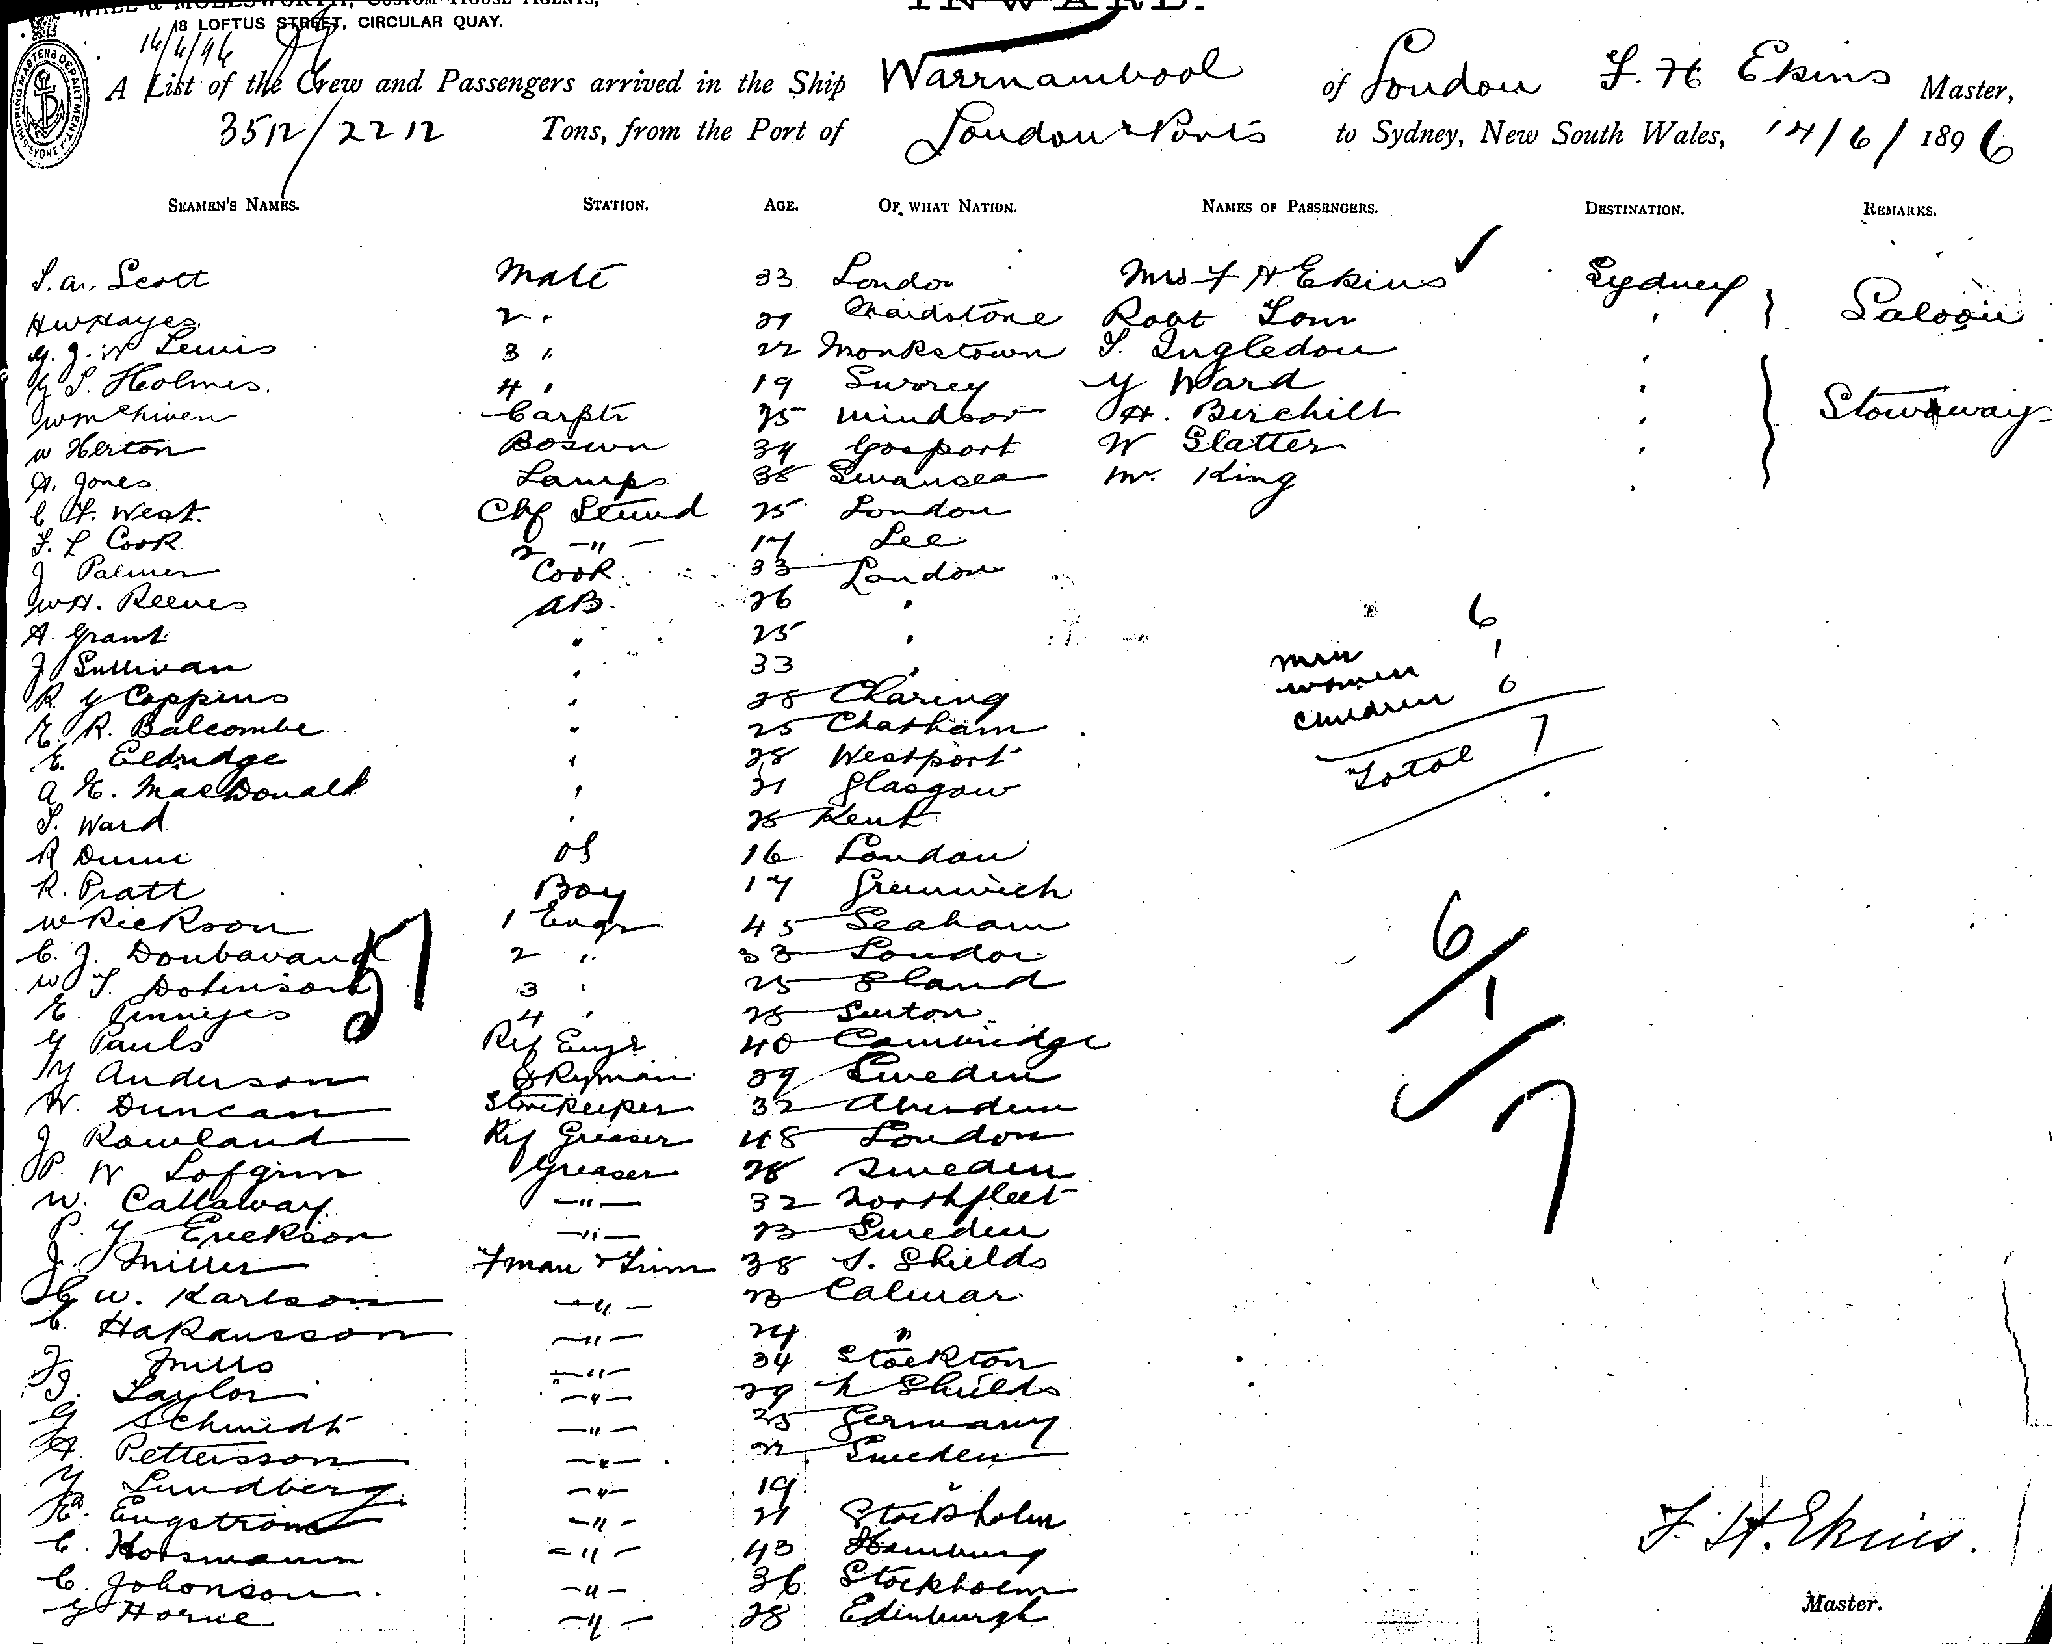 WALL & MOLLESWORTH, CUSTOM HOUSE AGENTS,
18 LOFTUS STREET, CIRCULAR QUAY.
INWARD.
16/6/96
A List of the Crew and Passengers arrived in the Ship Warrnambool of London F. H Ekins Master,
3512/2212 Tons, from the Port of London & Ports to Sydney, New South Wales, 14/6/1896
SEAMEN'S NAMES. STATION. AGE. OF WHAT NATION. NAMES OF PASSENGERS. DESTINATION. REMARKS.
S. a. Scott Mate 33 London Mrs F H Ekins Sydney Saloon
HW Hayes 2 " Maidstone Robt
G. J. W Lewis 3 " 22 Monkstown S. Ingledou "
G S. Holmes. 4 " 19 Surrey G Ward " Stowaways
Carptr 25 Windsor H. Birchill "
W Herton Boswn 34 Gosport W Slatter "
A. Jones Lamps 38 Swansea Mr. King "
C F. West. Chf Stewd 25 London
F. L Cook 2 -"- 17 Lee
J Palmer Cook 33 London
W H. Reeves AB. 26 "
A. Grant " 25 "
J Sullivan " 33 "
R G Coppins " 28 Charing
E. R. Balcombe " 25 Chatham
E. Eldridge " 28 Westport
A K. MacDonald " 21 Glasgow
S. Ward " 28 Kent
R Dunn OS 16 London
R. Pratt Boy 17 Greenwich
W Rickson 1 Engr 45 Seaham
C. J. Doubavand 2 " 33 London
W T. Dobinson 3 " 25
E. 4 " 28 Sutton
G Pauls Ref Engr 40 Cambridge
Anderson Dkyman 29 Sweden
W. Duncan Storekeeper 32 Aberdeen
J Rowland Ref Greaser 48 London
P. W Lofgrin Greaser 28 Sweden
W. Callaway -"- 32 Northfleet
P. G Erickson -"- 23 Sweden
J. Miller Fman & Trim 38 S. Shields
C W. Karlson -"- 23 Calmar
C. Hakansson -"- 24 "
F Mills -"- 34 Stockton
J. Taylor -"- 29 N Shields
G Schmidt -"- 25 Germany
A. Pettersson -"- 22 Sweden
G Lundberg -"- 19 "
E. Engstrom -"- 21 Stockholm
C. Horsmann -"- 43 Hamburg
C. Johonson -"- 36 Stockholm
G Horne -"- 28 Edinburgh
57
Men 6
Women 1
Children 0
Total 7
6/1
7
F. H. Ekins.
Master.